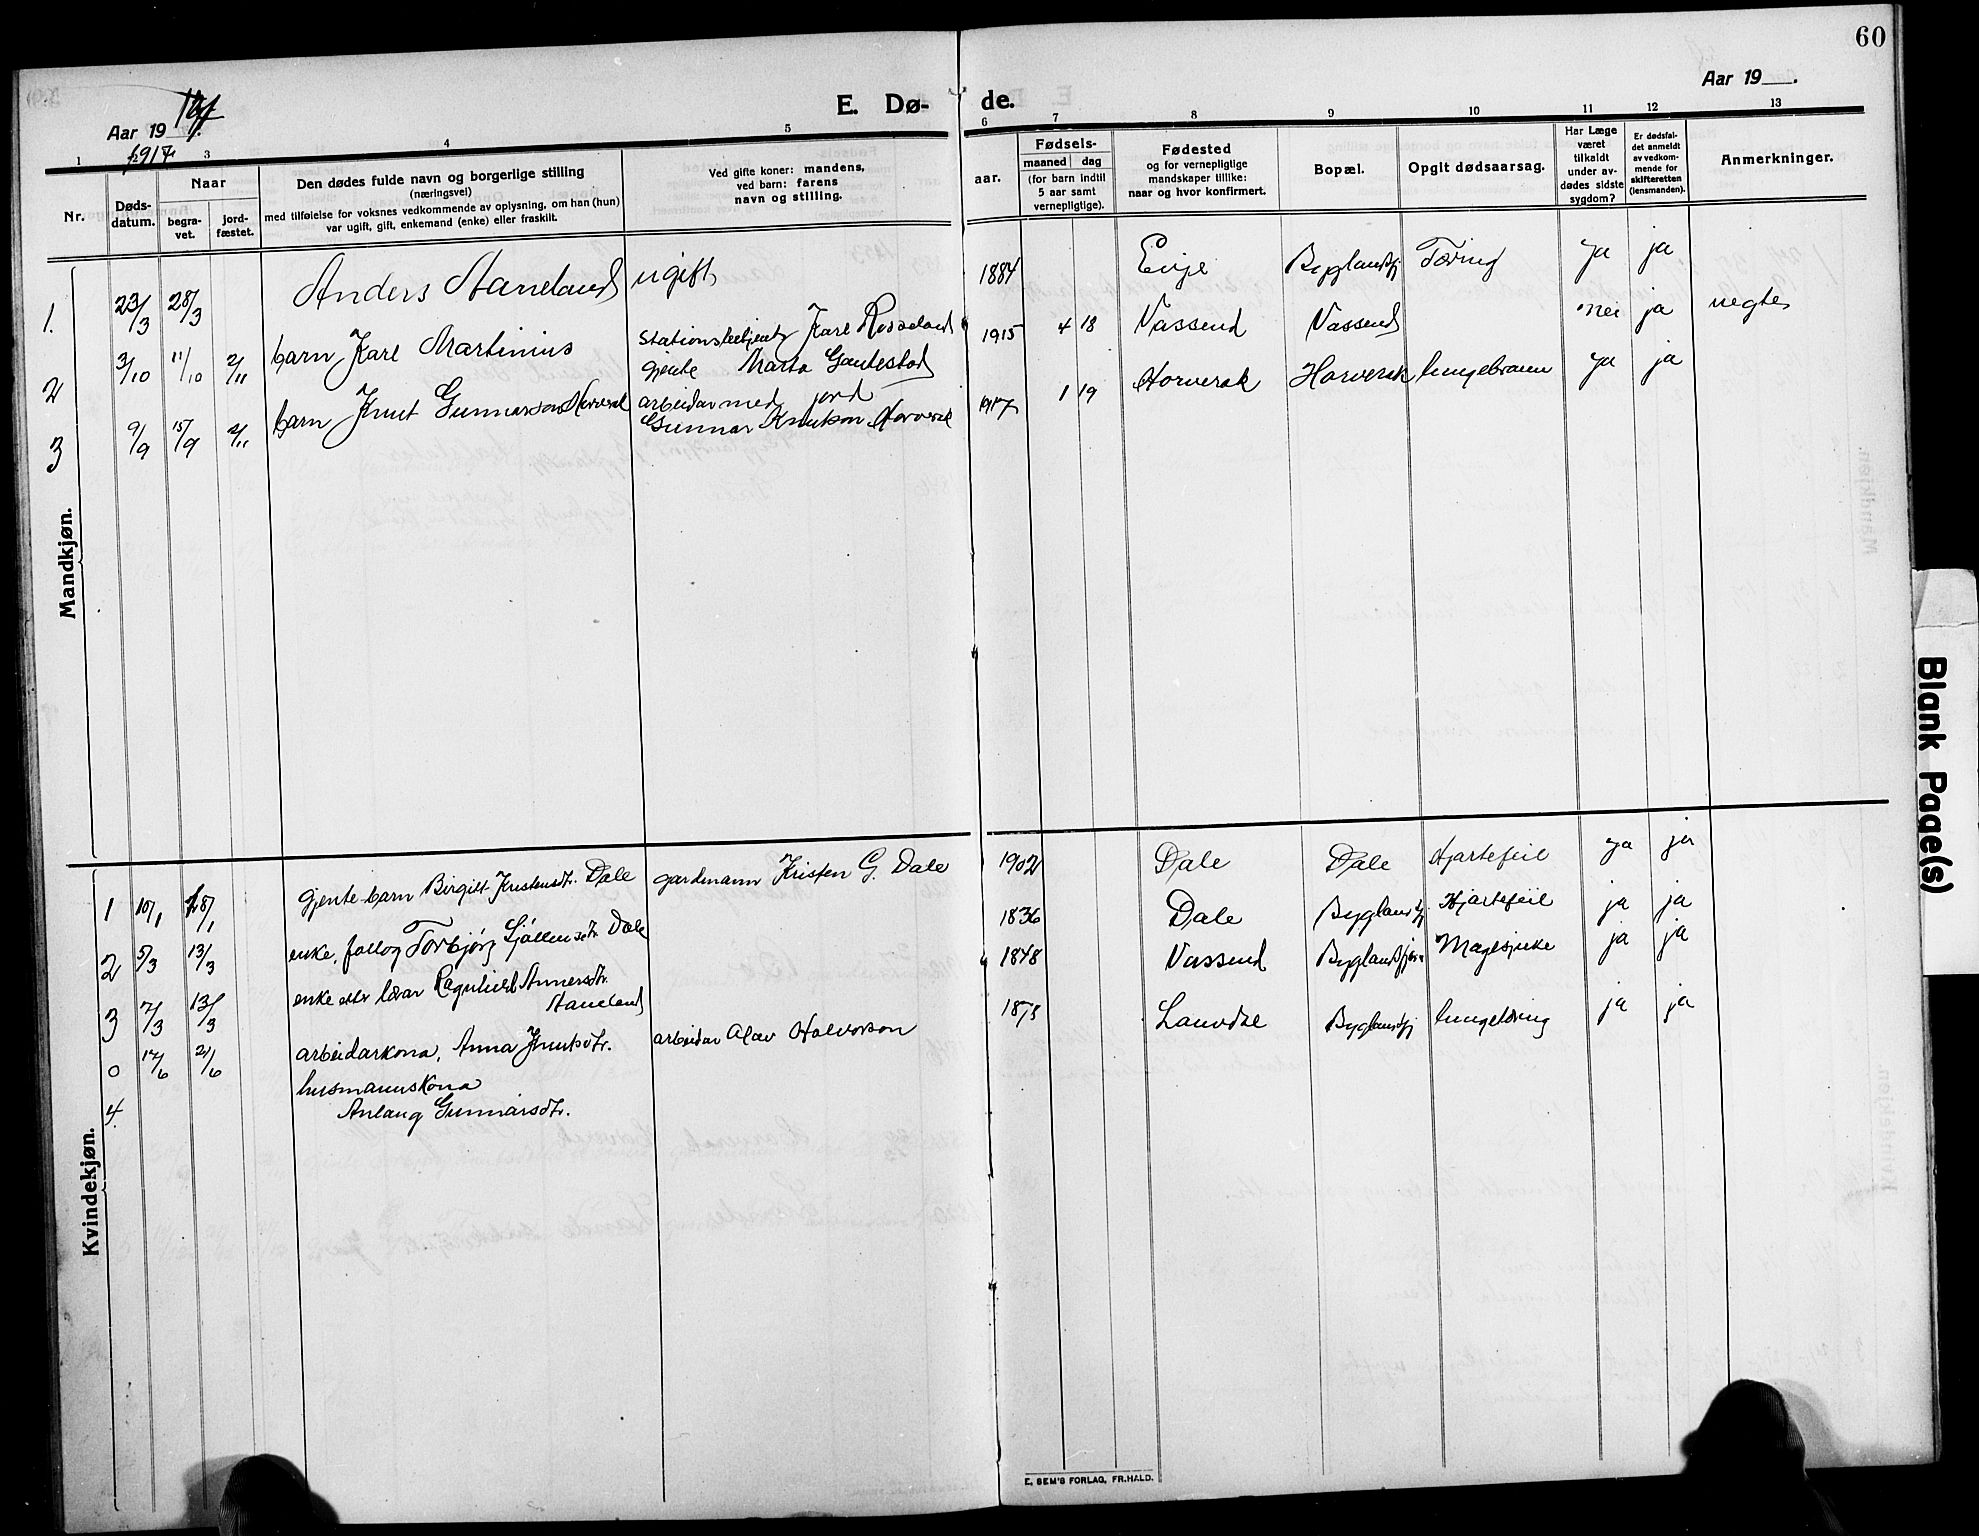 60
Aar 19
1917
E. Dø-
de.
Aar 19
1
3
4
5
6
7
8
9
10
11
12
13
Nr.
Døds-
datum.
Naar
begra-
vet.
jord-
fæstet.
Den dødes fulde navn og borgerlige stilling
(næringsvei)
med tilføielse for voksnes vedkommende av oplysning, om han (hun)
var ugift, gift, enkemand (enke) eller fraskilt.
Ved gifte koner: mandens,
ved barn: farens
navn og stilling.
aar.
Fødsels-
maaned dag
(for barn indtil
5 aar samt
vernepligtige).
Fødested
og for vernepligtige
mandskaper tillike:
naar og hvor konfirmert.
Bopæl.
Opgit dødsaarsag.
Har Læge
været
tilkaldt
under av-
dødes sidste
sygdom?
Er dødsfal-
det anmeldt
av vedkom-
mende for
skifteretten
(lensmanden).
Anmerkninger.
Mandkjøn.
1. 23/3 28/3 Anders Aaneland ugift 1884 Evje Byglandsfj Tæring ja ja
2 3/10 11/10 2/11 barn Karl Martinius Stationsbetjent Karl Rosseland
gjente Marta Gautestad 1915 4 18 Vassend Vassend nei ja negte
3 9/9 15/9 2/11 barn Knut Gunnarson Horverak arbeidar med jord
Gunnar Knutson Horverak 1917 1 19 Horverak Horverak lungebraun ja ja
Kvindekjøn.
1 10/1 18/1 gjente barn Birgit Kristensdtr. Dale gardmann Kristen G. Dale 1902 Dale Dale Hjartefeil ja ja
2 5/3 13/3 enke, fallog Torbjørg Sjøllensdtr Dale 1836 Dale Byglandsfj Hjartefeil ja ja
3 7/3 13/3 enke etter lærar Ragnhild Annersdtr.
Aaneland 1848 Vassend Byglandsfjor Magesjuke ja ja
0 17/6 21/6 arbeidarkona, Anna Knutsdtr. arbeidar Olav Halvorson 1875 Lauvdal Byglandsfj lungetæring ja ja
4. husmannskona
Anlaug Gunnarsdtr.
E. SEM'S FORLAG, FR.HALD.
Blank Page(s)